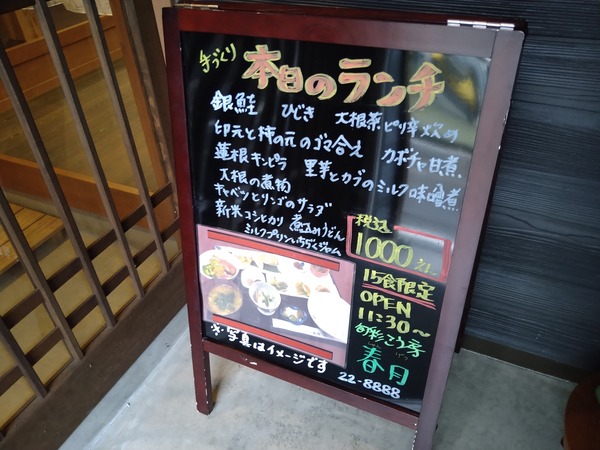 手づくり
本日のランチ
銀鮭 ひじき 大根菜ピリ辛炒め
印元と柿の元のゴマ合え カボチャ甘煮
蓮根キンピラ 里芋とカブのミルク味噌煮
大根の煮物
キャベツとリンゴのサラダ
新米コシヒカリ 煮込みうどん
ミルクプリンいちぢくジャム
税込
1000えん
15食限定
OPEN
11:30〜
旬彩こう房
春月
※写真はイメージです
22-8888